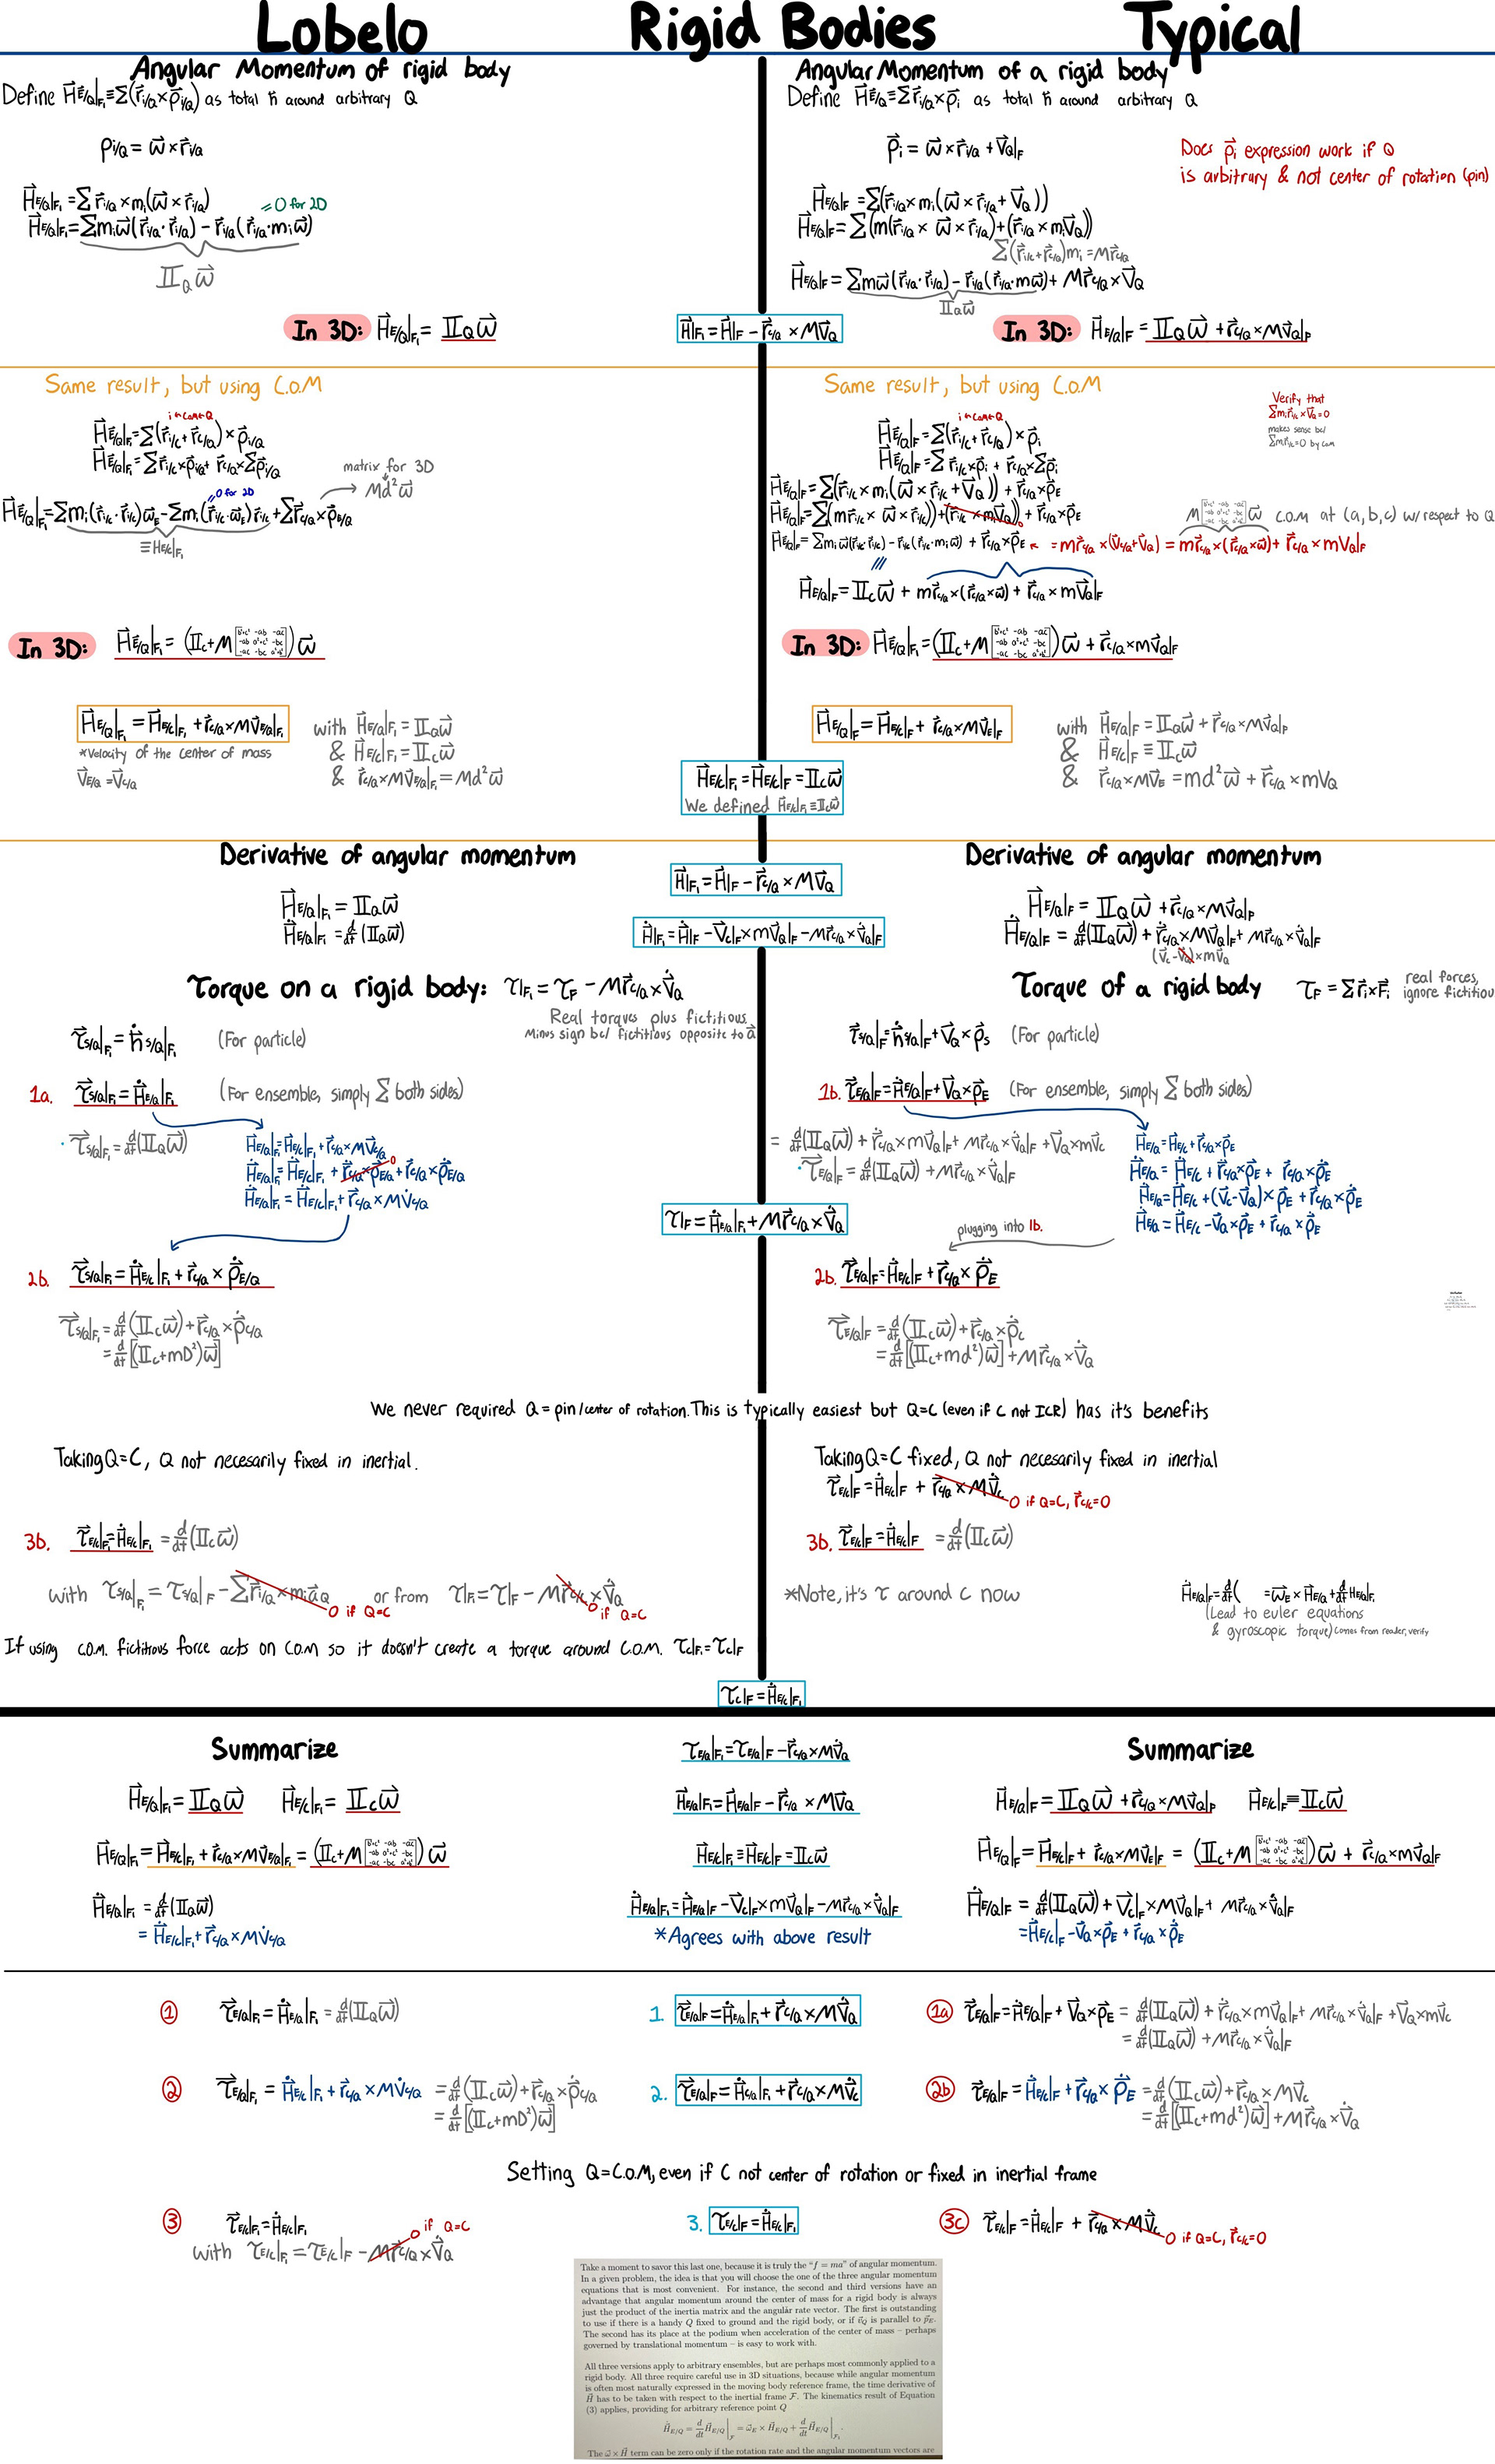 Lobelo
Rigid Bodies
Typical
Angular Momentum of rigid body
Define H⃗E/Q|F₁≡Σ(r⃗i/Q×ρ⃗i/Q) as total ℏ around arbitrary Q
ρi/Q = ω⃗×r⃗i/Q
H⃗E/Q|F₁=Σr⃗i/Q×mᵢ(ω⃗×r⃗i/Q)
=0 for 2D
H⃗E/Q|F₁=Σmᵢω⃗(r⃗i/Q·r⃗i/Q) − r⃗i/Q(r⃗i/Q·mᵢω⃗)
II_Q ω⃗
In 3D: H⃗E/Q|F₁= II_Q ω⃗
Angular Momentum of a rigid body
Define H⃗E/Q≡Σr⃗i/Q×ρ⃗i as total ℏ around arbitrary Q
ρ⃗i = ω⃗×r⃗i/Q +V⃗Q|F
Does ρ⃗i expression work if Q
is arbitrary & not center of rotation (pin)
H⃗E/Q|F =Σ(r⃗i/Q×mᵢ(ω⃗×r⃗i/Q+V⃗Q))
H⃗E/Q|F=Σ(m(r⃗i/Q×ω⃗×r⃗i/Q)+(r⃗i/Q×mᵢV⃗Q))
Σ(r⃗i/c+r⃗c/Q)mᵢ=Mr⃗c/Q
H⃗E/Q|F=Σmω⃗(r⃗i/Q·r⃗i/Q)−r⃗i/Q(r⃗i/Q·mω⃗)+Mr⃗c/Q×V⃗Q
II_Q ω⃗
H⃗|F₁=H⃗|F −r⃗c/Q×MV⃗Q
In 3D: H⃗E/Q|F = II_Q ω⃗ +r⃗c/Q×MV⃗Q|F
Same result, but using C.O.M
i←com←Q
H⃗E/Q|F₁=Σ(r⃗i/c+r⃗c/Q)×ρ⃗i/Q
H⃗E/Q|F₁=Σr⃗i/c×ρ⃗i/Q+r⃗c/Q×Σρ⃗i/Q
matrix for 3D
Md²ω⃗
=0 for 2D
H⃗E/Q|F₁=Σmᵢ(r⃗i/c·r⃗i/c)ω⃗E−Σmᵢ(r⃗i/c·ω⃗E)r⃗i/c+Σr⃗c/Q×ρ⃗E/Q
≡HE/c|F₁
In 3D: H⃗E/Q|F₁=(II_c+M[b²+c² -ab -ac -ab a²+c² -bc -ac -bc a²+b²])ω⃗
H⃗E/Q|F₁=H⃗E/c|F₁+r⃗c/Q×MV⃗E/Q|F₁
with H⃗E/Q|F₁=II_Q ω⃗
& H⃗E/c|F₁=II_c ω⃗
& r⃗c/Q×MV⃗E/Q|F₁=Md²ω⃗
*Velocity of the center of mass
V⃗E/Q=V⃗c/Q
Same result, but using C.O.M
i←com←Q
H⃗E/Q|F=Σ(r⃗i/c+r⃗c/Q)×ρ⃗i
H⃗E/Q|F=Σr⃗i/c×ρ⃗i+r⃗c/Q×Σρ⃗i
Verify that
Σmᵢr⃗i/c×V⃗Q=0
makes sense bc/
Σmᵢr⃗i/c=0 by com
H⃗E/Q|F=Σ(r⃗i/c×mᵢ(ω⃗×r⃗i/c+V⃗Q))+r⃗c/Q×ρ⃗E
H⃗E/Q|F=Σ(mr⃗i/c×ω⃗×r⃗i/c))+(r⃗i/c×mᵢV⃗Q)0+r⃗c/Q×ρ⃗E
M[b²+c² -ab -ac -ab a²+c² -bc -ac -bc a²+b²]ω⃗ C.O.M at (a,b,c) w/ respect to Q
H⃗E/Q|F=Σmᵢω⃗(r⃗i/c·r⃗i/c)−r⃗i/c(r⃗i/c·mᵢω⃗)+r⃗c/Q×ρ⃗E ← =mr⃗c/Q×(V⃗c/Q+V⃗Q)=mr⃗c/Q×(r⃗c/Q×ω⃗)+r⃗c/Q×mV⃗Q|F
H⃗E/Q|F=II_c ω⃗+mr⃗c/Q×(r⃗c/Q×ω⃗)+r⃗c/Q×mV⃗Q|F
In 3D: H⃗E/Q|F=(II_c+M[b²+c² -ab -ac -ab a²+c² -bc -ac -bc a²+b²])ω⃗+r⃗c/Q×mV⃗Q|F
H⃗E/Q|F=H⃗E/c|F+r⃗c/Q×MV⃗E|F
with H⃗E/Q|F=II_Q ω⃗+r⃗c/Q×MV⃗Q|F
& H⃗E/c|F≡II_c ω⃗
& r⃗c/Q×MV⃗E=md²ω⃗+r⃗c/Q×mVQ
H⃗E/c|F₁=H⃗E/c|F=II_c ω⃗
We defined H⃗E/c|F₁≡II_c ω⃗
Derivative of angular momentum
H⃗E/Q|F₁=II_Q ω⃗
Ḣ⃗E/Q|F₁=d/dt(II_Q ω⃗)
H⃗|F₁=H⃗|F−r⃗c/Q×MV⃗Q
Ḣ⃗|F₁=Ḣ⃗|F−V⃗c|F×mV⃗Q|F−mr⃗c/Q×V̇⃗Q|F
Derivative of angular momentum
H⃗E/Q|F=II_Q ω⃗+r⃗c/Q×MV⃗Q|F
Ḣ⃗E/Q|F=d/dt(II_Q ω⃗)+ṙ⃗c/Q×MV⃗Q|F+Mr⃗c/Q×V̇⃗Q|F
(V⃗c−V⃗Q)×mV⃗Q
Torque on a rigid body: τ|F₁=τF−Mr⃗c/Q×V̇⃗Q
Real torques plus fictitious.
Minus sign bc/ fictitious opposite to a⃗
τ⃗s/Q|F₁=ḣ⃗s/Q|F₁ (For particle)
1a. τ⃗s/Q|F₁=Ḣ⃗E/Q|F₁ (For ensemble, simply Σ both sides)
τ⃗s/Q|F₁=d/dt(II_Q ω⃗)
H⃗E/Q|F₁=H⃗E/c|F₁+r⃗c/Q×MV⃗c/Q
Ḣ⃗E/Q|F₁=Ḣ⃗E/c|F₁+ṙ⃗c/Q×ρ⃗E/Q0+r⃗c/Q×ρ̇⃗E/Q
Ḣ⃗E/Q|F₁=Ḣ⃗E/c|F₁+r⃗c/Q×MV̇c/Q
2b. τ⃗s/Q|F₁=Ḣ⃗E/c|F₁+r⃗c/Q×ρ̇⃗E/Q
τ⃗s/Q|F₁=d/dt(II_c ω⃗)+r⃗c/Q×ρ̇⃗c/Q
=d/dt[(II_c+mD²)ω⃗]
Torque of a rigid body τF=Σr⃗i×F⃗i real forces,
ignore fictitiou
τ⃗s/Q|F=ḣ⃗s/Q|F+V⃗Q×ρ⃗s (For particle)
1b. τ⃗E/Q|F=Ḣ⃗E/Q|F+V⃗Q×ρ⃗E (For ensemble, simply Σ both sides)
=d/dt(II_Q ω⃗)+ṙ⃗c/Q×mV⃗Q|F+Mr⃗c/Q×V̇⃗Q|F+V⃗Q×mV⃗c
τ⃗E/Q|F=d/dt(II_Q ω⃗)+Mr⃗c/Q×V̇⃗Q|F
H⃗E/Q=H⃗E/c+r⃗c/Q×ρ⃗E
Ḣ⃗E/Q=Ḣ⃗E/c+ṙ⃗c/Q×ρ⃗E+r⃗c/Q×ρ̇⃗E
Ḣ⃗E/Q=Ḣ⃗E/c+(V⃗c−V⃗Q)×ρ⃗E+r⃗c/Q×ρ̇⃗E
Ḣ⃗E/Q=Ḣ⃗E/c−V⃗Q×ρ⃗E+r⃗c/Q×ρ̇⃗E
τ|F=Ḣ⃗E/Q|F₁+Mr⃗c/Q×V̇⃗Q
plugging into 1b.
2b. τ⃗E/Q|F=Ḣ⃗E/c|F+r⃗c/Q×ρ̇⃗E
τ⃗E/Q|F=d/dt(II_c ω⃗)+r⃗c/Q×ρ̇⃗c
=d/dt[(II_c+md²)ω⃗]+Mr⃗c/Q×V̇⃗Q
We never required Q=pin/center of rotation. This is typically easiest but Q=C (even if C not ICR) has it's benefits
Taking Q=C, Q not necesarily fixed in inertial.
Taking Q=C fixed, Q not necesarily fixed in inertial
τ⃗E/c|F=Ḣ⃗E/c|F+r⃗c/Q×MV̇⃗c
0 if Q=C, r⃗c/c=0
3b. τ⃗E/c|F₁=Ḣ⃗E/c|F₁=d/dt(II_c ω⃗)
3b. τ⃗E/c|F=Ḣ⃗E/c|F=d/dt(II_c ω⃗)
with τs/Q|F₁=τs/Q|F−Σr⃗i/Q×mᵢa⃗Q or from τ|F₁=τ|F−Mr⃗c/c×V̇⃗Q
0 if Q=C
0 if Q=C
*Note, it's τ around C now
Ḣ⃗E/Q|F=d/dt( =ω⃗E×H⃗E/Q+d/dt HE/Q|F₁
(Lead to euler equations
& gyroscopic torque) comes from reader, verify
If using C.O.M. fictitious force acts on C.O.M so it doesn't create a torque around C.O.M. τc|F₁=τc|F
τc|F=Ḣ⃗E/c|F₁
Summarize
H⃗E/Q|F₁=II_Q ω⃗ H⃗E/c|F₁=II_c ω⃗
H⃗E/Q|F₁=H⃗E/c|F₁+r⃗c/Q×MV⃗E/Q|F₁=(II_c+M[b²+c² -ab -ac -ab a²+c² -bc -ac -bc a²+b²])ω⃗
Ḣ⃗E/Q|F₁=d/dt(II_Q ω⃗)
=Ḣ⃗E/c|F₁+r⃗c/Q×MV̇c/Q
τ⃗E/Q|F₁=τ⃗E/Q|F−r⃗c/Q×MV̇⃗Q
H⃗E/Q|F₁=H⃗E/Q|F−r⃗c/Q×MV⃗Q
H⃗E/c|F₁≡H⃗E/c|F=II_c ω⃗
Ḣ⃗E/Q|F₁=Ḣ⃗E/Q|F−V⃗c|F×mV⃗Q|F−mr⃗c/Q×V̇⃗Q|F
*Agrees with above result
Summarize
H⃗E/Q|F=II_Q ω⃗+r⃗c/Q×MV⃗Q|F H⃗E/c|F≡II_c ω⃗
H⃗E/Q|F=H⃗E/c|F+r⃗c/Q×MV⃗E|F=(II_c+M[b²+c² -ab -ac -ab a²+c² -bc -ac -bc a²+b²])ω⃗+r⃗c/Q×mV⃗Q|F
Ḣ⃗E/Q|F=d/dt(II_Q ω⃗)+V⃗c|F×MV⃗Q|F+Mr⃗c/Q×V̇⃗Q|F
=Ḣ⃗E/c|F−V⃗Q×ρ⃗E+r⃗c/Q×ρ̇⃗E
① τ⃗E/Q|F₁=Ḣ⃗E/Q|F₁=d/dt(II_Q ω⃗)
1. τ⃗E/Q|F=Ḣ⃗E/Q|F₁+r⃗c/Q×MV̇⃗Q
1a τ⃗E/Q|F=Ḣ⃗E/Q|F+V⃗Q×ρ⃗E=d/dt(II_Q ω⃗)+ṙ⃗c/Q×mV⃗Q|F+Mr⃗c/Q×V̇⃗Q|F+V⃗Q×mV⃗c
=d/dt(II_Q ω⃗)+Mr⃗c/Q×V̇⃗Q|F
② τ⃗E/Q|F₁=Ḣ⃗E/c|F₁+r⃗c/Q×MV̇c/Q=d/dt(II_c ω⃗)+r⃗c/Q×ρ̇⃗c/Q
=d/dt[(II_c+mD²)ω⃗]
2. τ⃗E/Q|F=Ḣ⃗c/Q|F₁+r⃗c/Q×MV̇⃗c
2b τ⃗E/Q|F=Ḣ⃗E/c|F+r⃗c/Q×ρ̇⃗E=d/dt(II_c ω⃗)+r⃗c/Q×MV̇c
=d/dt[(II_c+md²)ω⃗]+Mr⃗c/Q×V̇⃗Q
Setting Q=C.O.M, even if C not center of rotation or fixed in inertial frame
③ τ⃗E/c|F₁=Ḣ⃗E/c|F₁
with τE/c|F₁=τE/c|F−Mr⃗c/Q×V̇⃗Q
0 if Q=C
3. τ⃗E/c|F=Ḣ⃗E/c|F₁
3c τ⃗E/c|F=Ḣ⃗E/c|F+r⃗c/Q×MV̇⃗c
0 if Q=C, r⃗c/c=0
Take a moment to savor this last one, because it is truly the "f = ma" of angular momentum.
In a given problem, the idea is that you will choose the one of the three angular momentum
equations that is most convenient. For instance, the second and third versions have an
advantage that angular momentum around the center of mass for a rigid body is always
just the product of the inertia matrix and the angular rate vector. The first is outstanding
to use if there is a handy Q fixed to ground and the rigid body, or if v⃗Q is parallel to p⃗E.
The second has its place at the podium when acceleration of the center of mass – perhaps
governed by translational momentum – is easy to work with.
All three versions apply to arbitrary ensembles, but are perhaps most commonly applied to a
rigid body. All three require careful use in 3D situations, because while angular momentum
is often most naturally expressed in the moving body reference frame, the time derivative of
H⃗ has to be taken with respect to the inertial frame F. The kinematics result of Equation
(3) applies, providing for arbitrary reference point Q
Ḣ⃗E/Q = d/dt H⃗E/Q|F = ω⃗E × H⃗E/Q + d/dt H⃗E/Q|F₁.
The ω⃗ × H⃗ term can be zero only if the rotation rate and the angular momentum vectors are